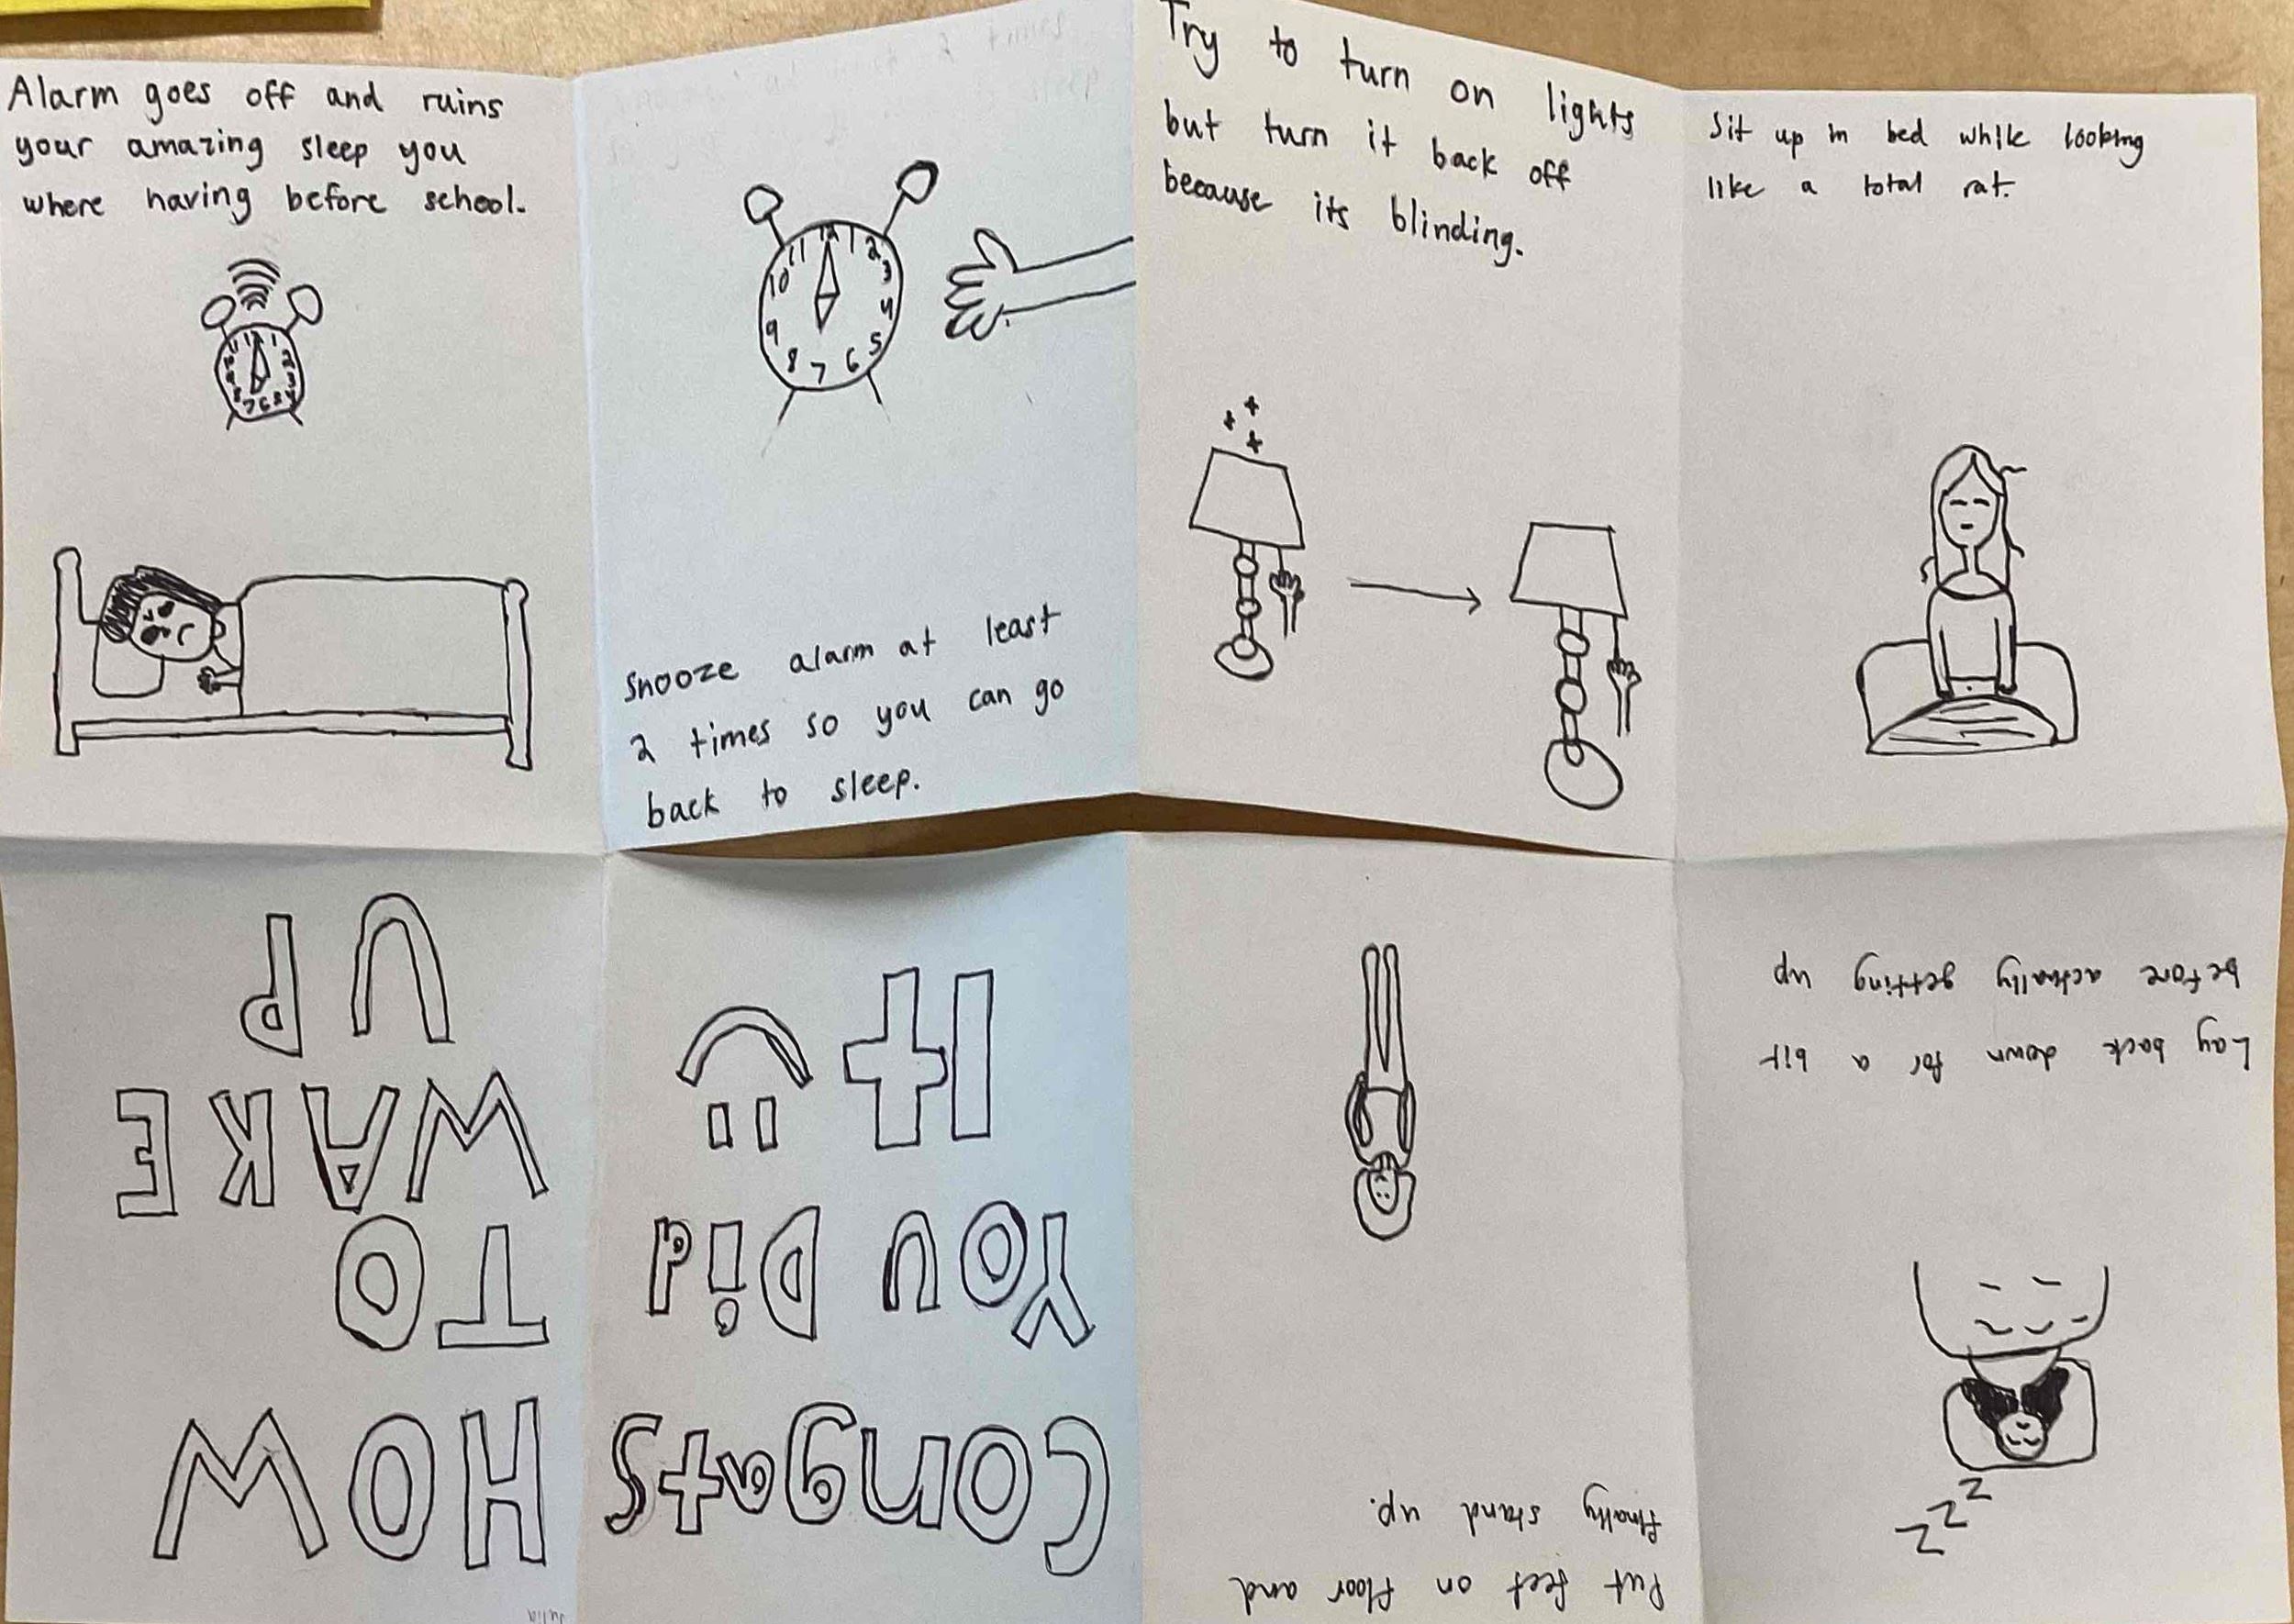 HOW
TO
WAKE
UP
Julia
Alarm goes off and ruins
your amazing sleep you
where having before school.
12 1 2 3 4 5 6 7 8 9 10 11
snooze alarm at least
2 times so you can go
back to sleep.
Try to turn on lights
but turn it back off
because its blinding.
Sit up in bed while looking
like a total rat.
Lay back down for a bit
before actually getting up
z z z
Put feet on floor and
finally stand up.
Congrats
You Did
It :)